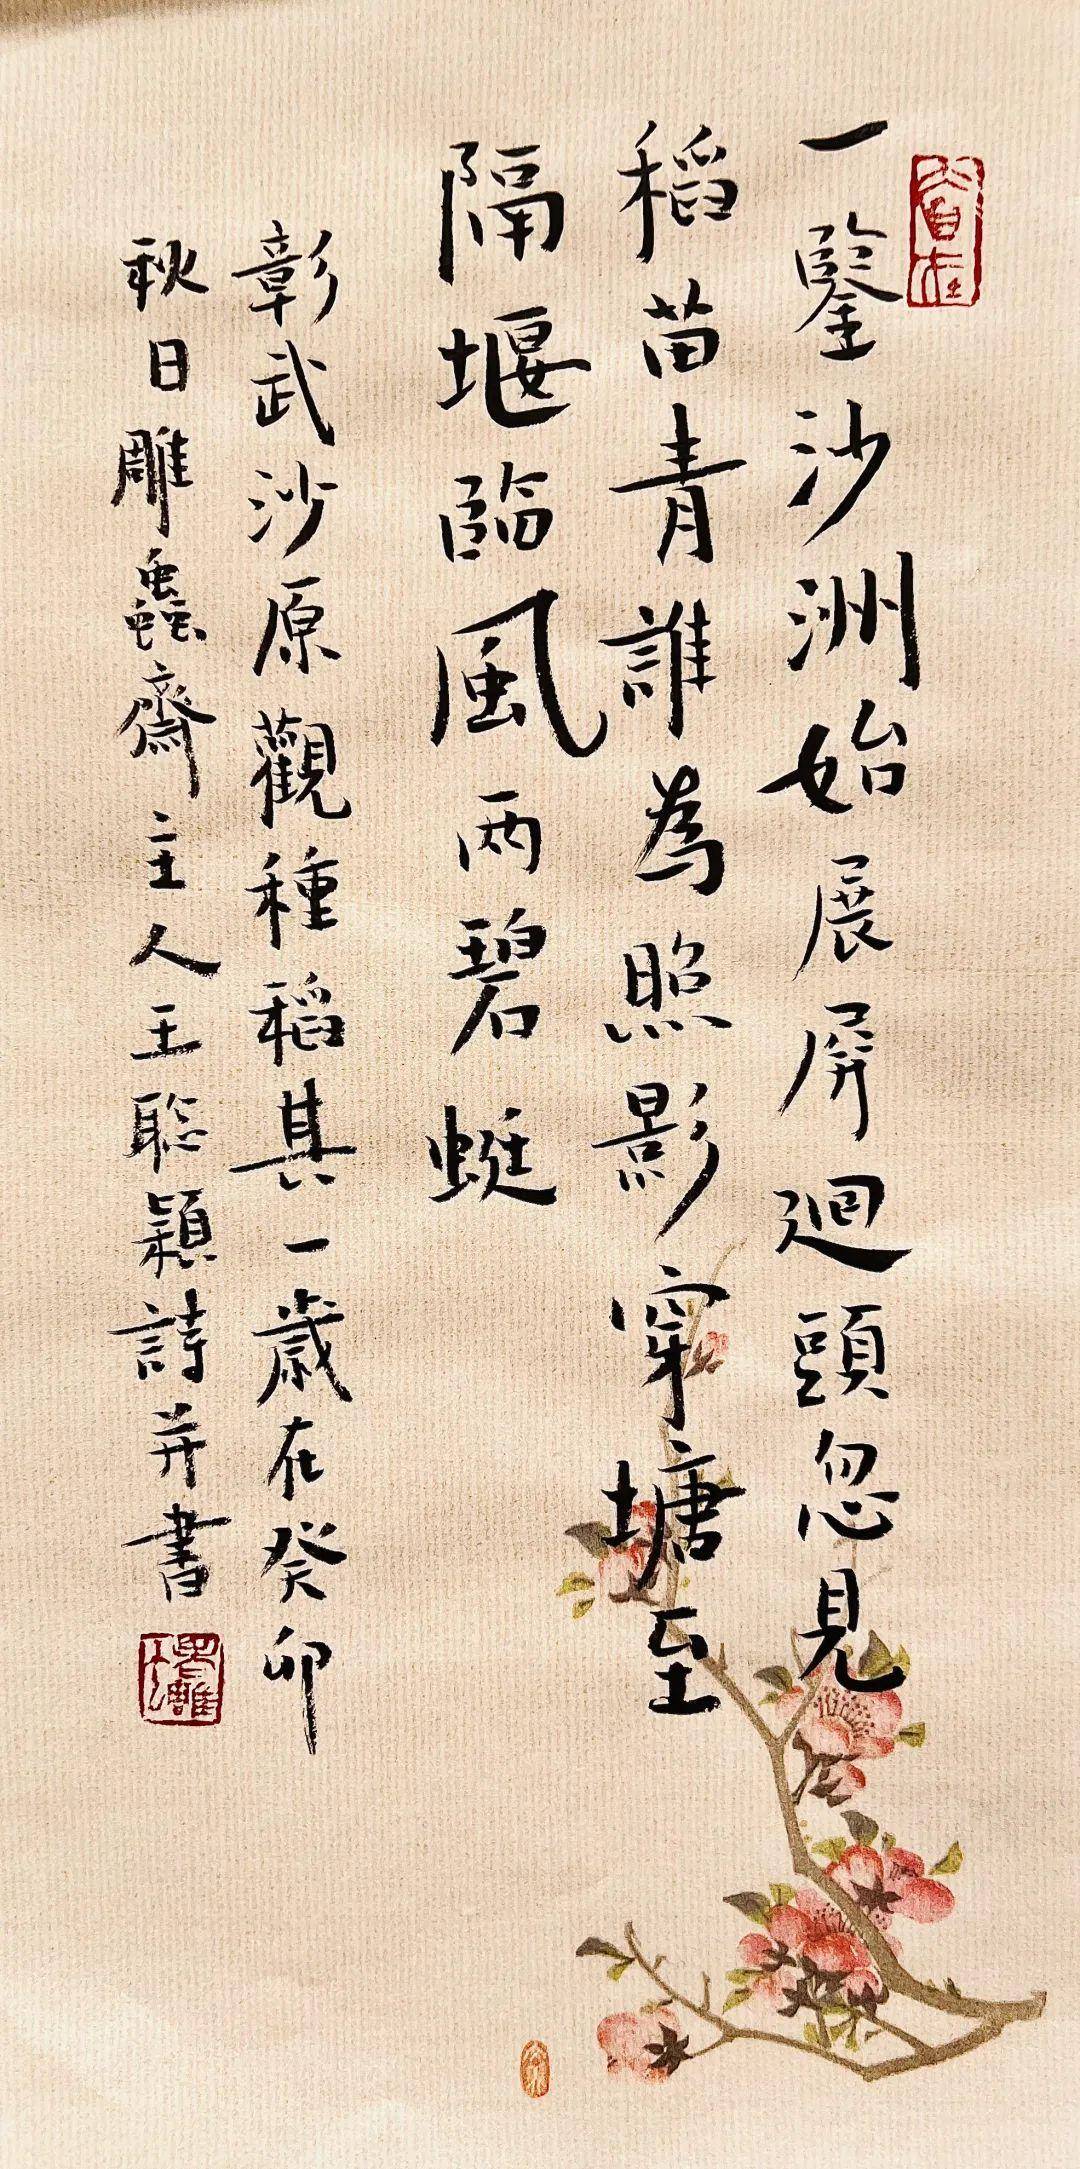 一鑒沙洲始展屏迴頭忽見
稻苗青誰為照影穿塘至
隔堰臨風兩碧蜓
彰武沙原觀種稻其一歲在癸卯
秋日雕蟲齋主人王聰穎詩并書